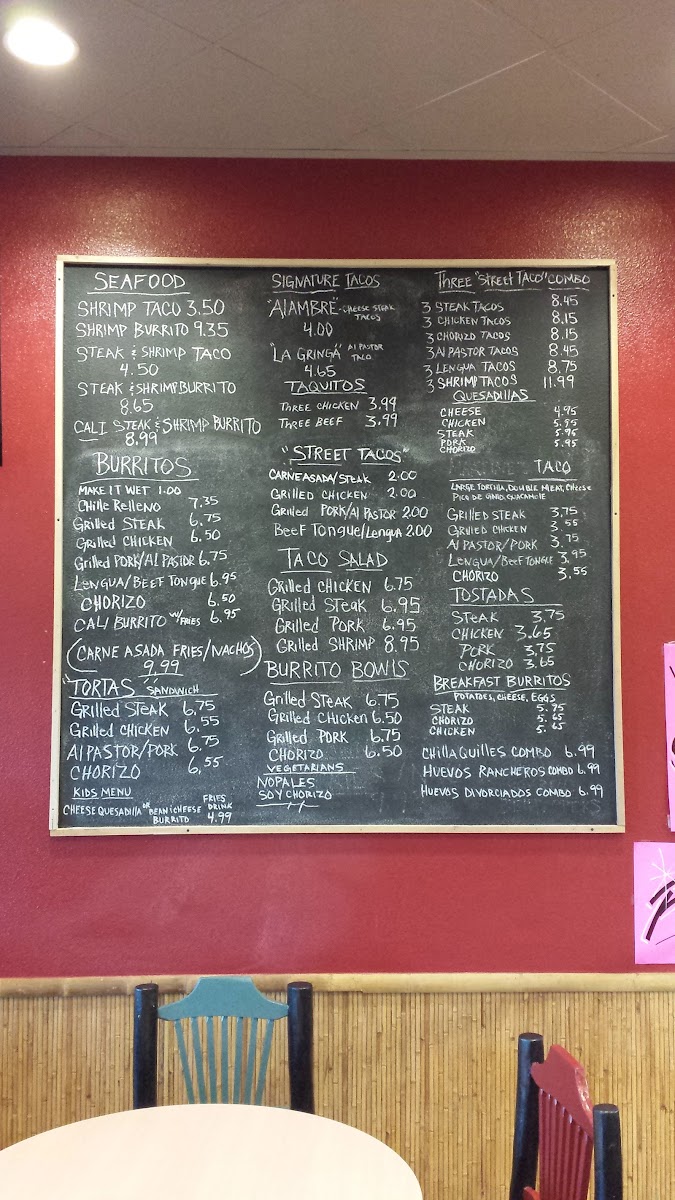 SEAFOOD
SHRIMP TACO 3.50
SHRIMP BURRITO 9.35
STEAK & SHRIMP TACO
4.50
STEAK & SHRIMP BURRITO
8.65
CALI STEAK & SHRIMP BURRITO
8.99
BURRITOS
MAKE IT WET 1.00
CHILE RELLENO 7.35
GRILLED STEAK 6.75
GRILLED CHICKEN 6.50
GRILLED PORK/AL PASTOR 6.75
LENGUA/BEEF TONGUE 6.95
CHORIZO 6.50
CALI BURRITO W/FRIES 6.95
(CARNE ASADA FRIES/NACHOS)
9.99
"TORTAS" SANDWICH
GRILLED STEAK 6.75
GRILLED CHICKEN 6.55
Al PASTOR/PORK 6.75
CHORIZO 6.55
KIDS MENU
CHEESE QUESADILLA OR BEAN & CHEESE BURRITO FRIES DRINK 4.99
SIGNATURE TACOS
"AlAMBRE" - CHEESE STEAK TACOS
4.00
"LA GRINGA" Al PASTOR TACO
4.65
TAQUITOS
THREE CHICKEN 3.99
THREE BEEF 3.99
"STREET TACOS"
CARNE ASADA/STEAK 2.00
GRILLED CHICKEN 2.00
GRILLED PORK/Al PASTOR 2.00
BEEF TONGUE/LENGUA 2.00
TACO SALAD
GRILLED CHICKEN 6.75
GRILLED STEAK 6.95
GRILLED PORK 6.95
GRILLED SHRIMP 8.95
BURRITO BOWLS
GRILLED STEAK 6.75
GRILLED CHICKEN 6.50
GRILLED PORK 6.75
CHORIZO 6.50
VEGETARIANS
NOPALES
SOY CHORIZO
THREE "STREET TACO" COMBO
3 STEAK TACOS 8.45
3 CHICKEN TACOS 8.15
3 CHORIZO TACOS 8.15
3 Al PASTOR TACOS 8.45
3 LENGUA TACOS 8.75
3 SHRIMP TACOS 11.99
QUESADILLAS
CHEESE 4.95
CHICKEN 5.95
STEAK 5.95
PORK 5.95
CHORIZO
TACO
LARGE TORTILLA, DOUBLE MEAT, CHEESE
PICO DE GALLO, GUACAMOLE
GRILLED STEAK 3.75
GRILLED CHICKEN 3.55
Al PASTOR/PORK 3.75
LENGUA/BEEF TONGUE 3.95
CHORIZO 3.55
TOSTADAS
STEAK 3.75
CHICKEN 3.65
PORK 3.75
CHORIZO 3.65
BREAKFAST BURRITOS
POTATOES, CHEESE, EGGS
STEAK 5.75
CHORIZO 5.65
CHICKEN 5.65
CHILLAQUILLES COMBO 6.99
HUEVOS RANCHEROS COMBO 6.99
HUEVOS DIVORCIADOS COMBO 6.99